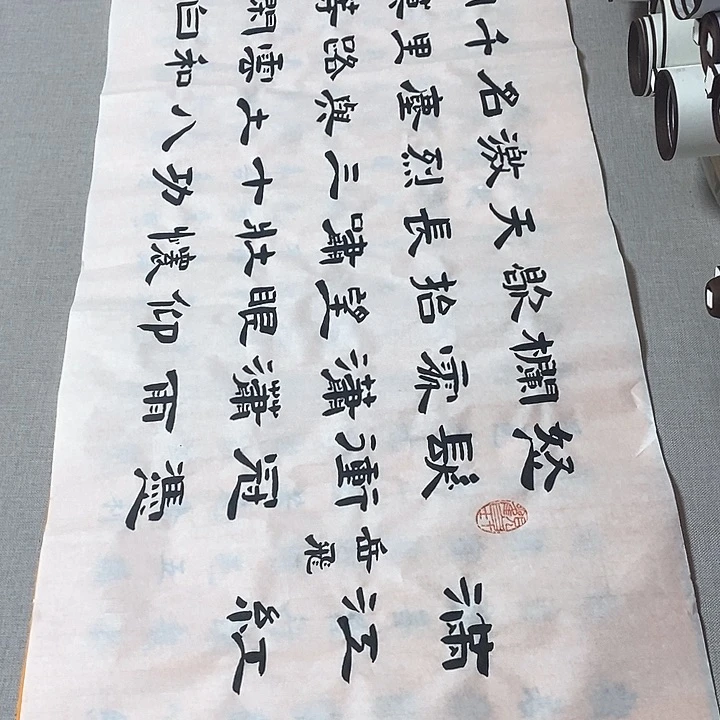 滿江紅
岳飛
怒髮衝冠憑
欄處瀟瀟雨
歇抬望眼仰
天長嘯壯懷
激烈三十功
名塵與土八
千里路雲和
莫等閒白